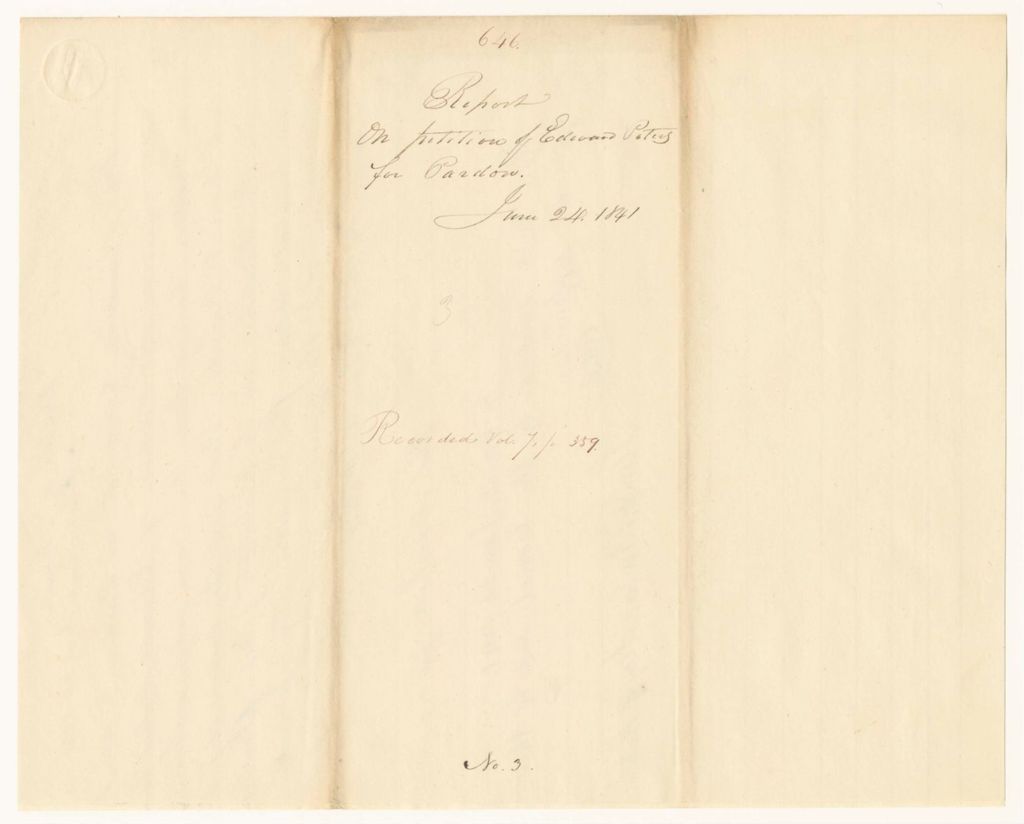 646.
Report
On petition of Edward Peters
for Pardon.
June 24. 1841
3
Recorded Vol. 7, p. 359.
No. 3.